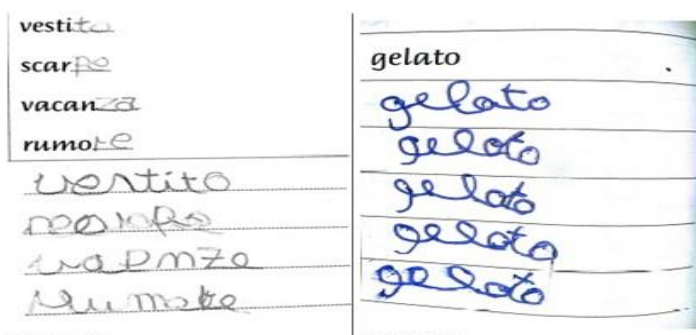 vestito
scarpe
vacanza
rumore
vestito
scarpe
vapnze
rumobe
gelato
gelato
geloto
gelato
gelota
geloto